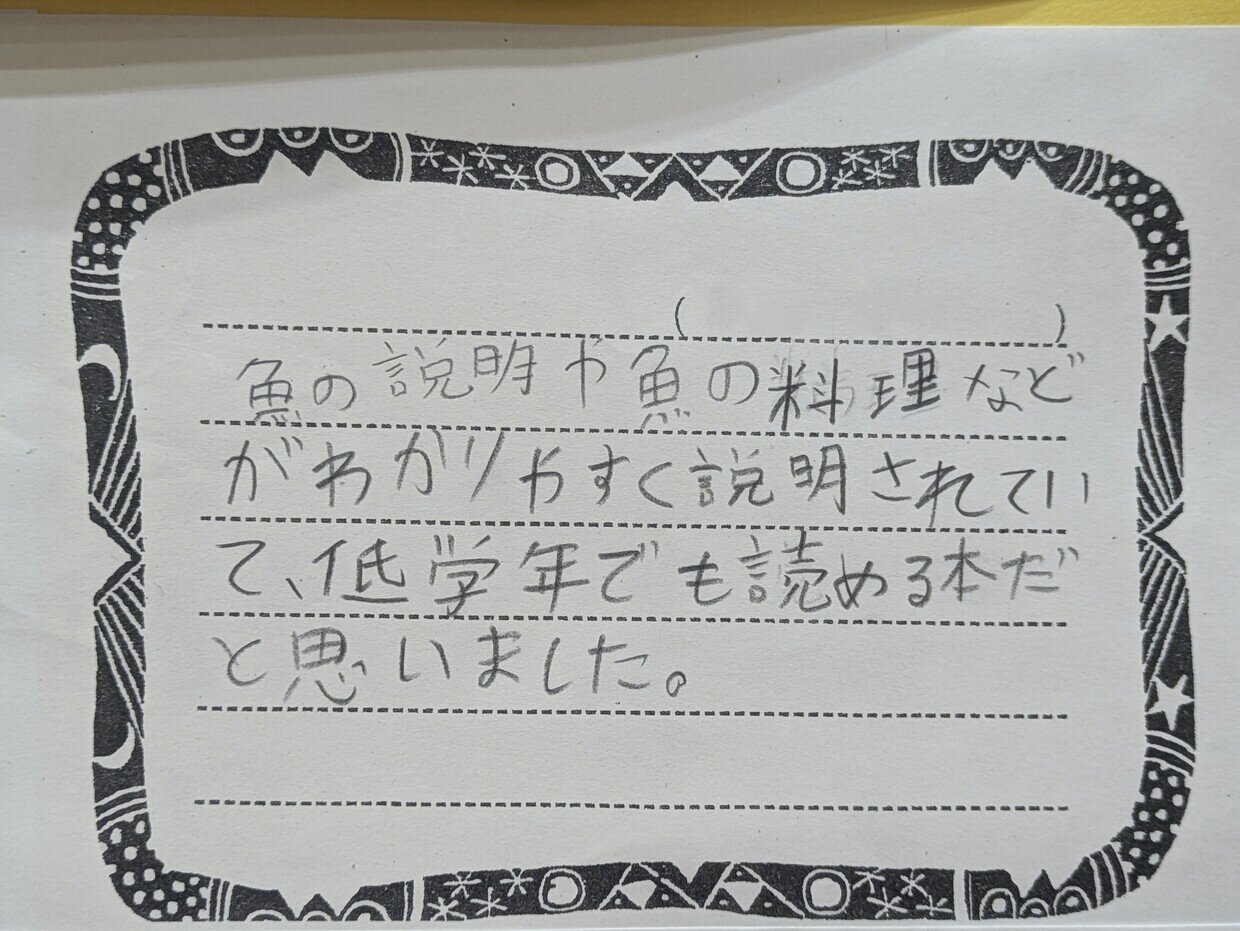 (　　　　　　)
魚の説明や魚の料理など
がわかりやすく説明されてい
て、低学年でも読める本だ
と思いました。